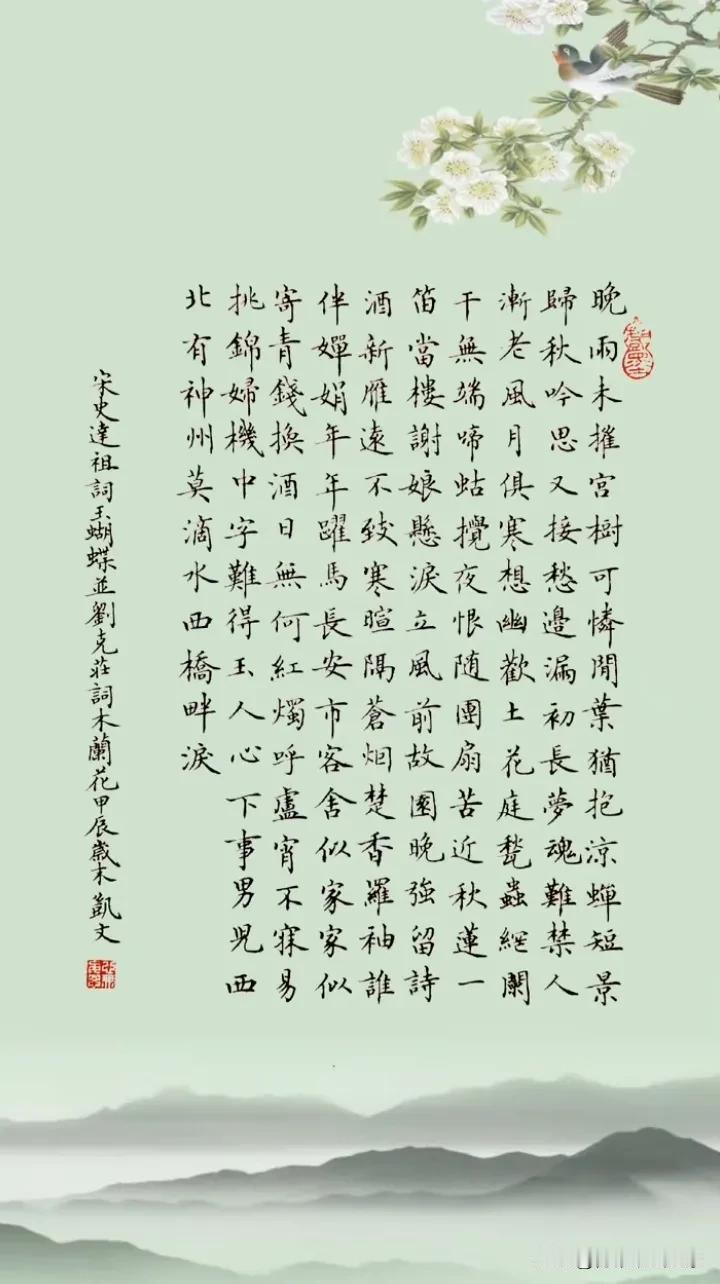 晚雨未摧宮樹可憐閒葉猶抱涼蟬短景
歸秋吟思又接愁邊漏初長夢魂難禁人
漸老風月俱寒想幽歡土花庭甃蟲網闌
干無端啼蛄攪夜恨随團扇苦近秋蓮一
笛當樓謝娘懸淚立風前故園晚強留詩
酒新雁遠不致寒暄隔蒼烟楚香羅袖誰
伴嬋娟年年躍馬長安市客舍似家家似
寄青錢換酒日無何紅燭呼盧宵不寐易
挑錦婦機中字難得玉人心下事男兒西
北有神州莫滴水西橋畔淚
宋史達祖詞玉蝴蝶並劉克莊詞木蘭花甲辰歲木凱文